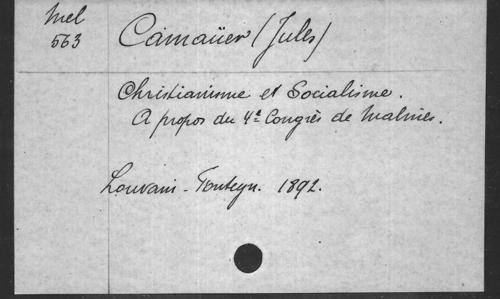 Mel
563
Camaüer (Jules)
Christianisme et Socialisme.
A propos du 4e Congrès de Malines.
Louvain - Fonteyn. 1892.